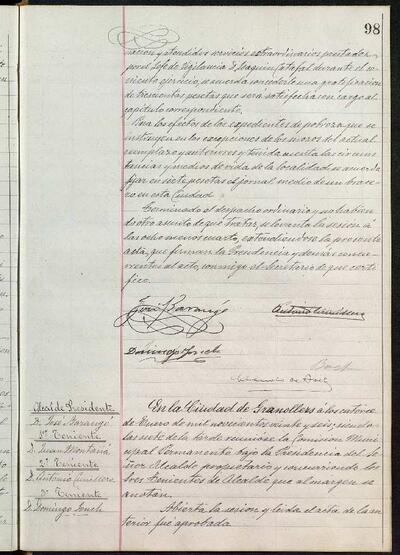 98
nación y atendidos servicios extraordinarios prestados
por el Jefe de Vigilancia D. Joaquin Catafal durante el co-
rriente ejercicio, se acuerda concederle una gratificacion
de trescientas pesetas que será satisfecha con cargo al
capítulo correspondiente.
Para los efectos de los expedientes de pobreza que se
instruyen en las excepciones de los mozos del actual
reemplazo y anteriores y tenida cuenta las circuns-
tancias y medios de vida de la localidad se acuerda
fijar en siete pesetas el jornal medio de un brace-
ro en esta Ciudad
Terminado el despacho ordinario y no habien-
do otro asunto de que tratar, se levanta la sesión a
las ocho menos cuarto, extendiéndose la presente
acta, que firman la Presidencia y demás concu-
rrentes al acto, conmigo el Secretario de que certi-
fico.
José Barangé
Antonio Cumellera
Domingo Fonch
Alcalde Presidente
D. José Barangé
1er Teniente
D. Juan Montañá
2º Teniente
D. Antonio Cumellera
3er Teniente
D. Domingo Fonch
En la Ciudad de Granollers á los catorce
de Enero de mil novecientos veinte y seis; siendo
las siete de la tarde reunióse la Comisión Muni-
cipal Permanente bajo la Presidencia del Se-
ñor Alcalde propietario y concurriendo los
tres Tenientes de Alcalde que al margen se
anotan.
Abierta la sesion y leida el acta de la an-
terior fue aprobada.